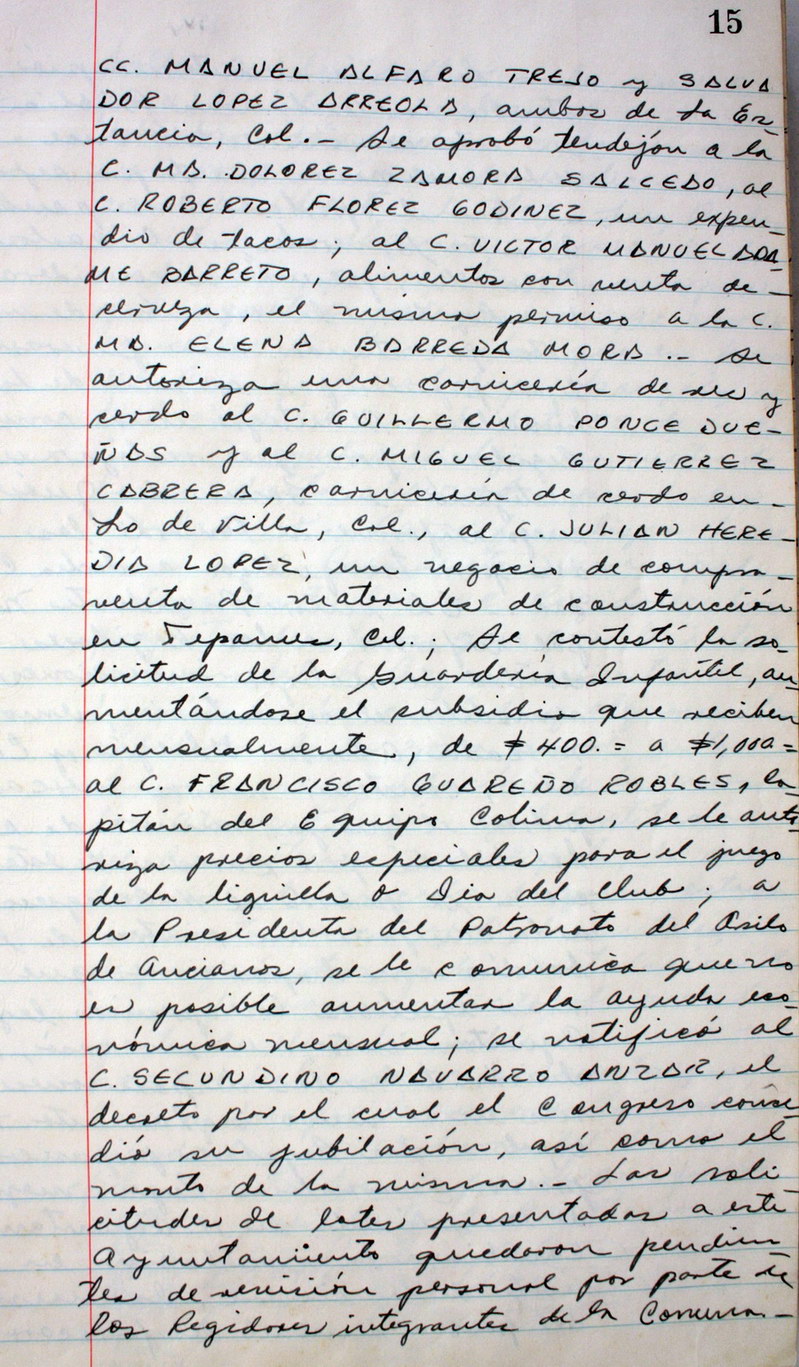 15
CC. MANUEL ALFARO TREJO y SALVA
DOR LOPEZ ARREOLA, ambos de La Es-
tancia, Col.- Se aprobó tendejón a la
C. MA. DOLOREZ ZAMORA SALCEDO, al
C. ROBERTO FLOREZ GODINEZ, un expen-
dio de tacos; al C. VICTOR MANUEL ADA-
ME BARRETO, alimentos con venta de-
cerveza, el mismo permiso a la C.
MA. ELENA BARREDA MORA.- Se
autoriza una carnicería de res y
cerdo al C. GUILLERMO PONCE DUE-
ÑAS y al C. MIGUEL GUTIERREZ
CABRERA, carnicería de cerdo en-
Lo de Villa, Col., al C. JULIAN HERE-
DIA LOPEZ, un negocio de compra-
venta de materiales de construcción
en Tepames, Col.; Se contestó la so-
licitud de la Guardería Infantil, au-
mentándose el subsidio que reciben
mensualmente, de $400.= a $1,000=
al C. FRANCISCO GUAREÑO ROBLES, Ca-
pitán del Equipo Colima, se le auto-
riza precios especiales para el juego
de la liguilla o Dia del Club; a
la Presidenta del Patronato del Asilo
de Ancianos, se le comunica que no
es posible aumentar la ayuda eco-
nómica mensual; se notificó al
C. SECUNDINO NAVARRO ANZAR, el
decreto por el cual el Congreso conce-
dió su jubilación, así como el
monto de la misma.- Las soli-
citudes de lotes presentadas a este
Ayuntamiento quedaron pendien
tes de revisión personal por parte de
los Regidores integrantes de la Comuna.-